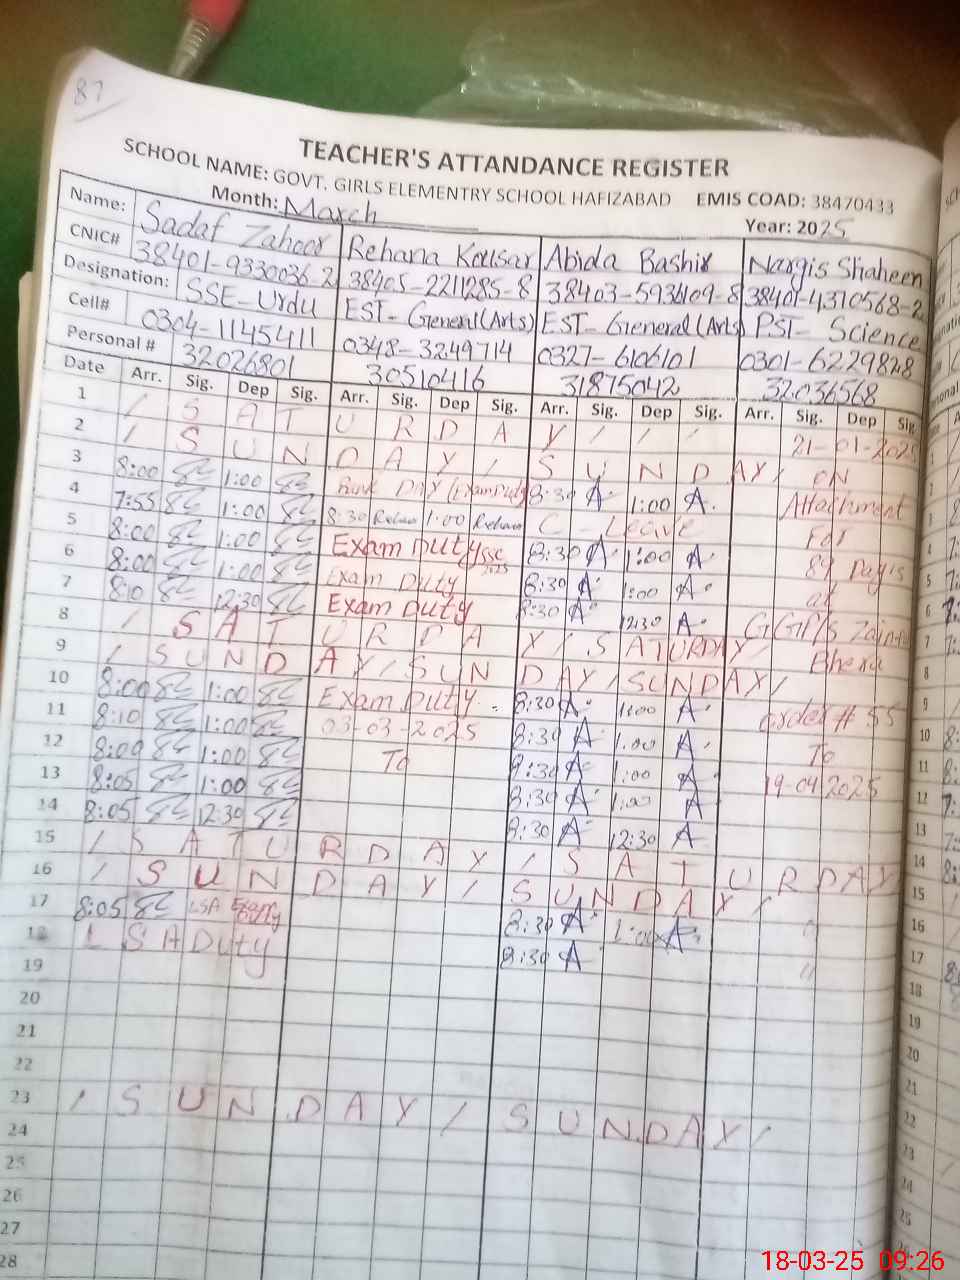 87
TEACHER'S ATTANDANCE REGISTER
SCHOOL NAME: GOVT. GIRLS ELEMENTRY SCHOOL HAFIZABAD EMIS COAD: 38470433
Month: March Year: 2025
Name: Sadaf Zahoor Rehana Kousar Abida Bashir Nargis Shaheen
CNIC# 38401-9330036-2 38405-2211285-8 38403-5936109-8 38401-4310568-2
Designation: SSE-Urdu EST-General(Arts) EST-General(Arts) PST-Science
Cell# 0304-1145411 0348-3249714 0327-6106101 0301-6229828
Personal # 32026801 30510416 31875042 32036568
Date Arr. Sig. Dep Sig. Arr. Sig. Dep Sig. Arr. Sig. Dep Sig. Arr. Sig. Dep Sig.
1 / S A T U R D A Y / / / 21-01-2025
2 / S U N D A Y / S U N D A Y / ON
3 8:00 1:00 DAY (Exam Duty 8:30 A 1:00 A. Attachment
4 7:55 1:00 8:30 Rehan 1:00 Rehan C - Leave For
5 8:00 1:00 Exam Duty SSC 2025 8:30 A 1:00 A 89 Day's
6 8:00 1:00 Exam Duty 8:30 A 1:00 A at
7 8:10 12:30 Exam Duty 8:30 A 12:30 A GGP/S
8 / S A T U R D A Y / SATURDAY/ Bhera
9 / S U N D A Y / S U N D A Y / SUNDAY/
10 8:00 1:00 Exam Duty 8:30 A 1:00 A order # 55
11 8:10 1:00 03-03-2025 8:30 A 1:00 A To
12 8:00 1:00 To 8:30 A 1:00 A 19-04-2025
13 8:05 1:00 8:30 A 1:00 A
14 8:05 12:30 8:30 A 12:30 A
15 / S A T U R D A Y / S A T U R D A Y
16 / S U N D A Y / S U N D A Y /
17 8:05 LSA Exam Duty 8:30 A 1:00 A "
18 LSA Duty 8:30 A "
19
20
21
22
23 / S U N D A Y / S U N D A Y /
24
25
26
27
28
18-03-25 09:26